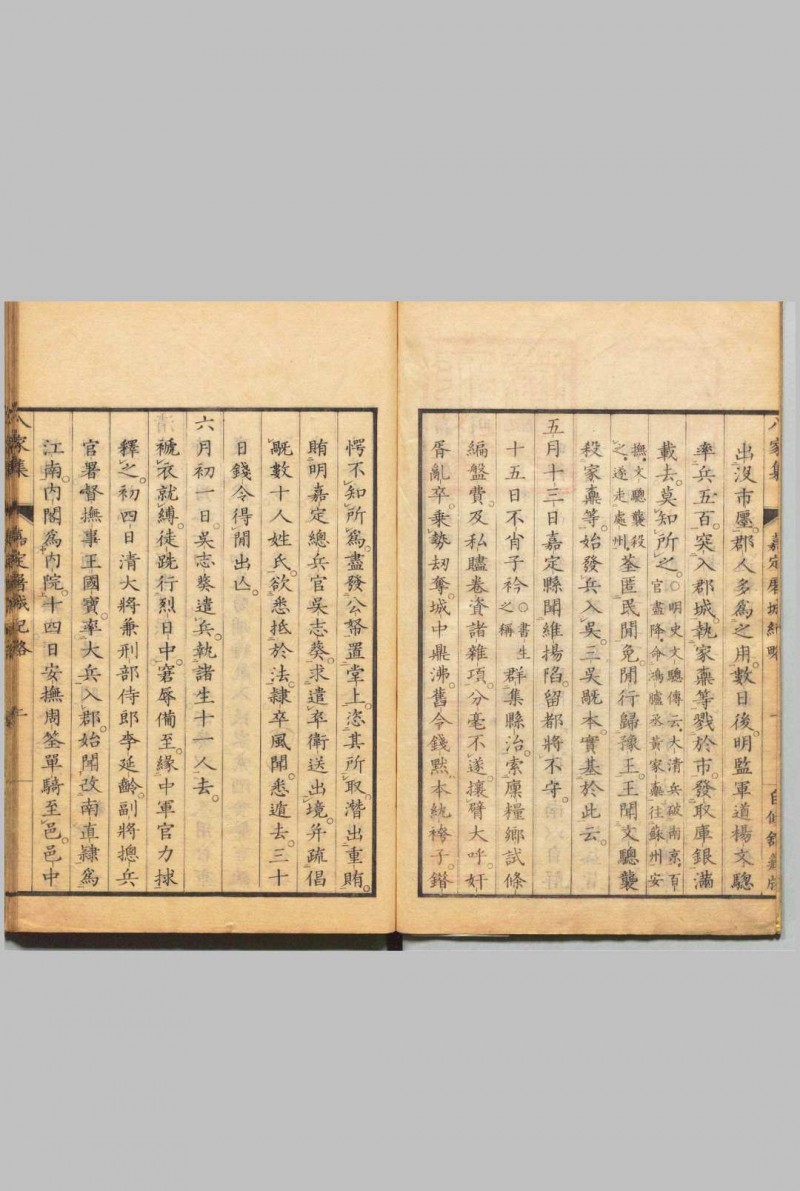 八家集 嘉定屠城紀略 一
出沒市廛。郡人多爲之用。數日後。明監軍道楊文驄
率兵五百。突入郡城。執家鼒等。戮於市。發取庫銀滿
載去。莫知所之。○明史文驄傳云。大清兵破南京。百官盡降。命鴻臚丞黃家鼒往蘇州安
撫。文驄襲殺之。遂走處州。荃匿民閒免。閒行歸豫王。王聞文驄襲
殺家鼒等。始發兵入吳。三吳厩本。實基於此云。
五月十三日。嘉定縣聞維揚陷。留都將不守。
十五日。不肖子衿○書生之稱群集縣治。索廩糧鄉試條
編盤費。及私贐卷資諸雜項。分毫不遂。攘臂大呼。奸
胥亂卒。乘勢刧奪。城中鼎沸。舊令錢默。本紈袴子。錯
愕不知所爲。盡發公帑置堂上。恣其所取。潛出重賄。
賄明嘉定總兵官吳志葵。求遣卒衛送出境。幷疏倡
厩數十人姓氏。欲悉抵於法。隷卒風聞。悉遁去。三十
日。錢令得閒出亾。
六月初一日。吳志葵遣兵。執諸生十一人去。
褫衣就縛。徒跣行烈日中。窘辱備至。緣中軍官力捄。
釋之。初四日。清大將兼刑部侍郎李延齡。副將摠兵
官署督撫事王國寶。率大兵入郡。始聞改南直隷爲
江南。內閣爲內院。十四日。安撫周荃單騎至邑。邑中
八家集 嘉定屠城紀略